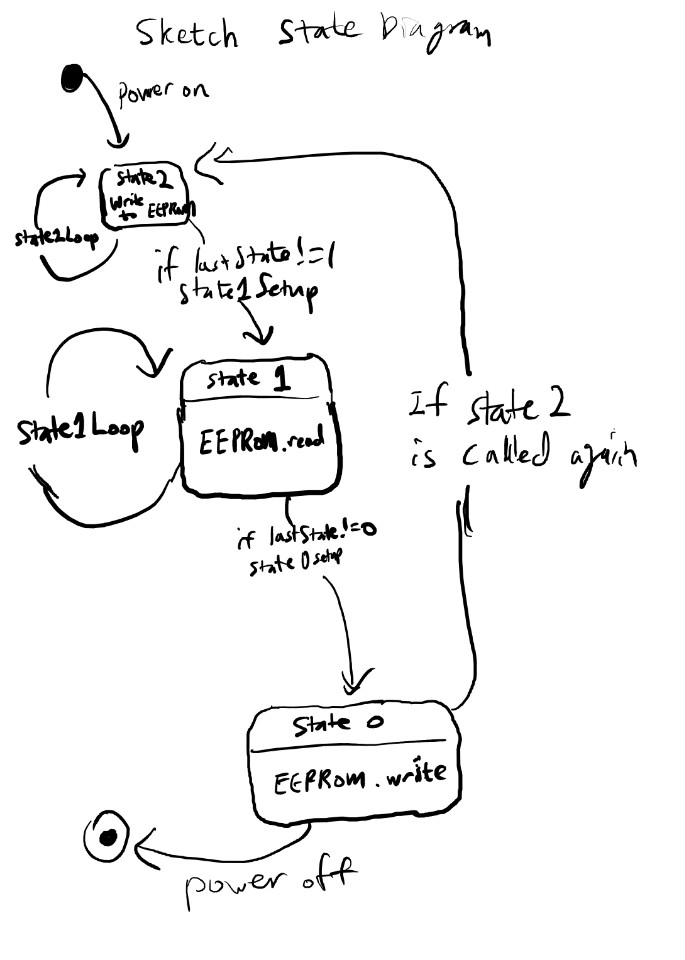 Sketch State Diagram
Power on
State 2
Write
to EEPRom
State2Loop
if lastState!=1
state1Setup
state 1
EEPRom.read
State1Loop
If state 2
is called again
if lastState!=0
state 0 setup
State 0
EEPRom.write
power off